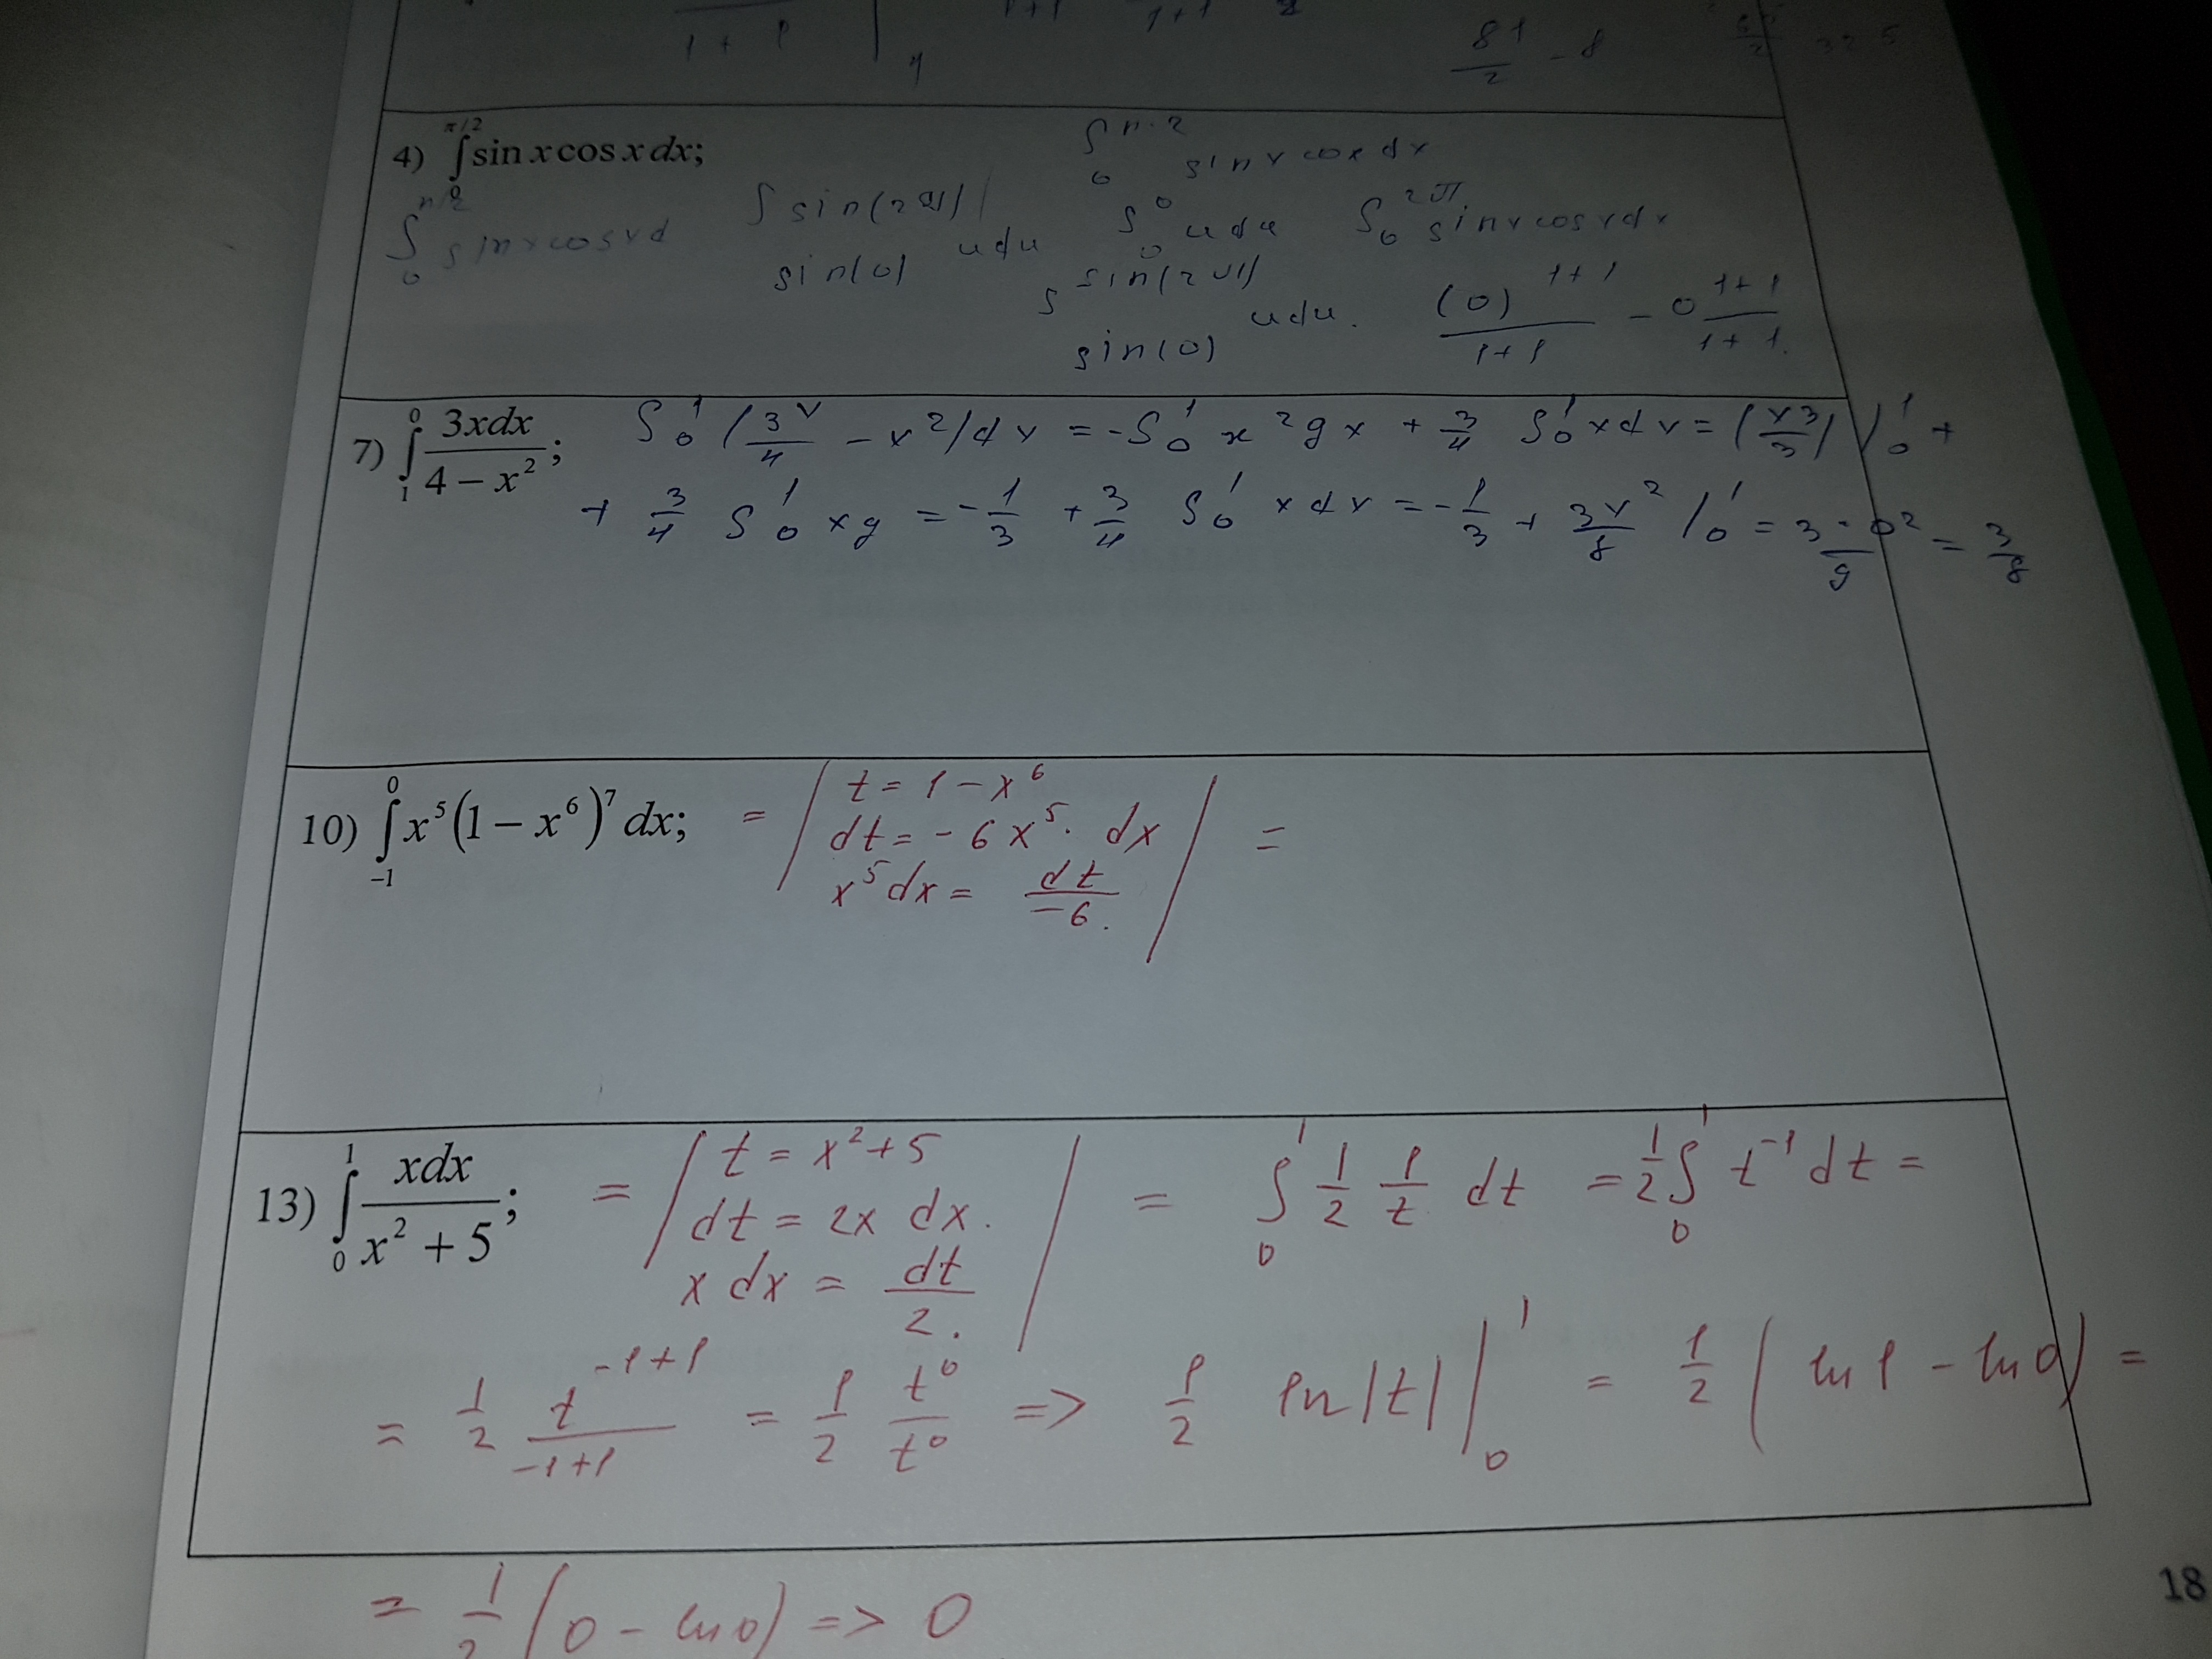 1 + 1 | 4 1+1 1+1 2 81/2 - 8
4) ∫_0^{π/2} sin x cos x dx; ∫_0^{π·2} sin x cox dx
∫_0^{π/2} sin x cos x d ∫ sin(2π) | sin(0) u du ∫_0^0 u du ∫_0^{2π} sin x cos x dx
∫_{sin(0)}^{sin(2π)} u du. (0)^{1+1}/1+1 - 0^{1+1}/1+1.
7) ∫_1^0 3xdx/(4 - x²); ∫_0^1 (3x/4 - x²) dx = -∫_0^1 x² gx + 3/4 ∫_0^1 x dx = (x3/3) |_0^1 +
+ 3/4 ∫_0^1 xg = -1/3 + 3/4 ∫_0^1 x dx = -1/3 + 3x²/8 |_0^1 = 3·0²/9 = 3/8
10) ∫_{-1}^0 x⁵(1 - x⁶)⁷ dx; = | t = 1 - x⁶
dt = -6x⁵· dx | =
x⁵dx = dt/-6.
13) ∫_0^1 xdx/(x² + 5); = | t = x² + 5
dt = 2x dx. | = ∫_0^1 1/2 1/t dt = 1/2 ∫_0^1 t⁻¹ dt =
x dx = dt/2.
= 1/2 t^{-1+1}/-1+1 = 1/2 t⁰/t⁰ => 1/2 ln|t| |_0^1 = 1/2 (ln 1 - ln 0) =
= 1/2 (0 - ln 0) => 0
18